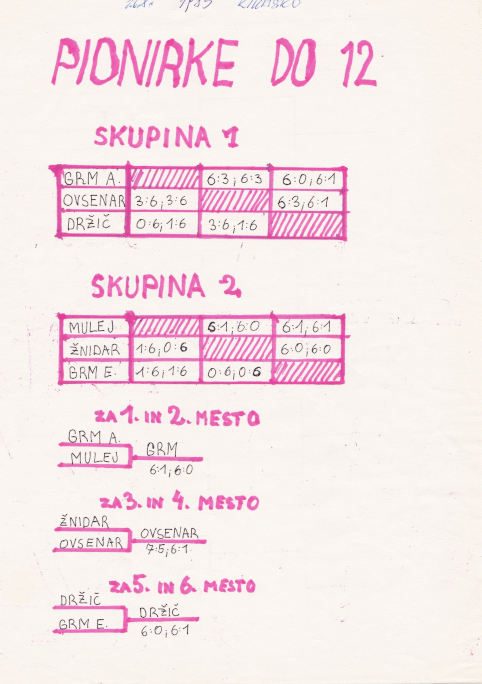 1983
PIONIRKE DO 12
SKUPINA 1
GRM A. 6:3, 6:3 6:0, 6:1
OVSENAR 3:6, 3:6 6:3, 6:1
DRŽIČ 0:6, 1:6 3:6, 1:6
SKUPINA 2
MULEJ 6:1, 6:0 6:1, 6:1
ŽNIDAR 1:6, 0:6 6:0, 6:0
GRM E. 1:6, 1:6 0:6, 0:6
ZA 1. IN 2. MESTO
GRM A.
MULEJ GRM
6:1, 6:0
ZA 3. IN 4. MESTO
ŽNIDAR
OVSENAR OVSENAR
7:5, 6:1
ZA 5. IN 6. MESTO
DRŽIČ
GRM E. DRŽIČ
6:0, 6:1